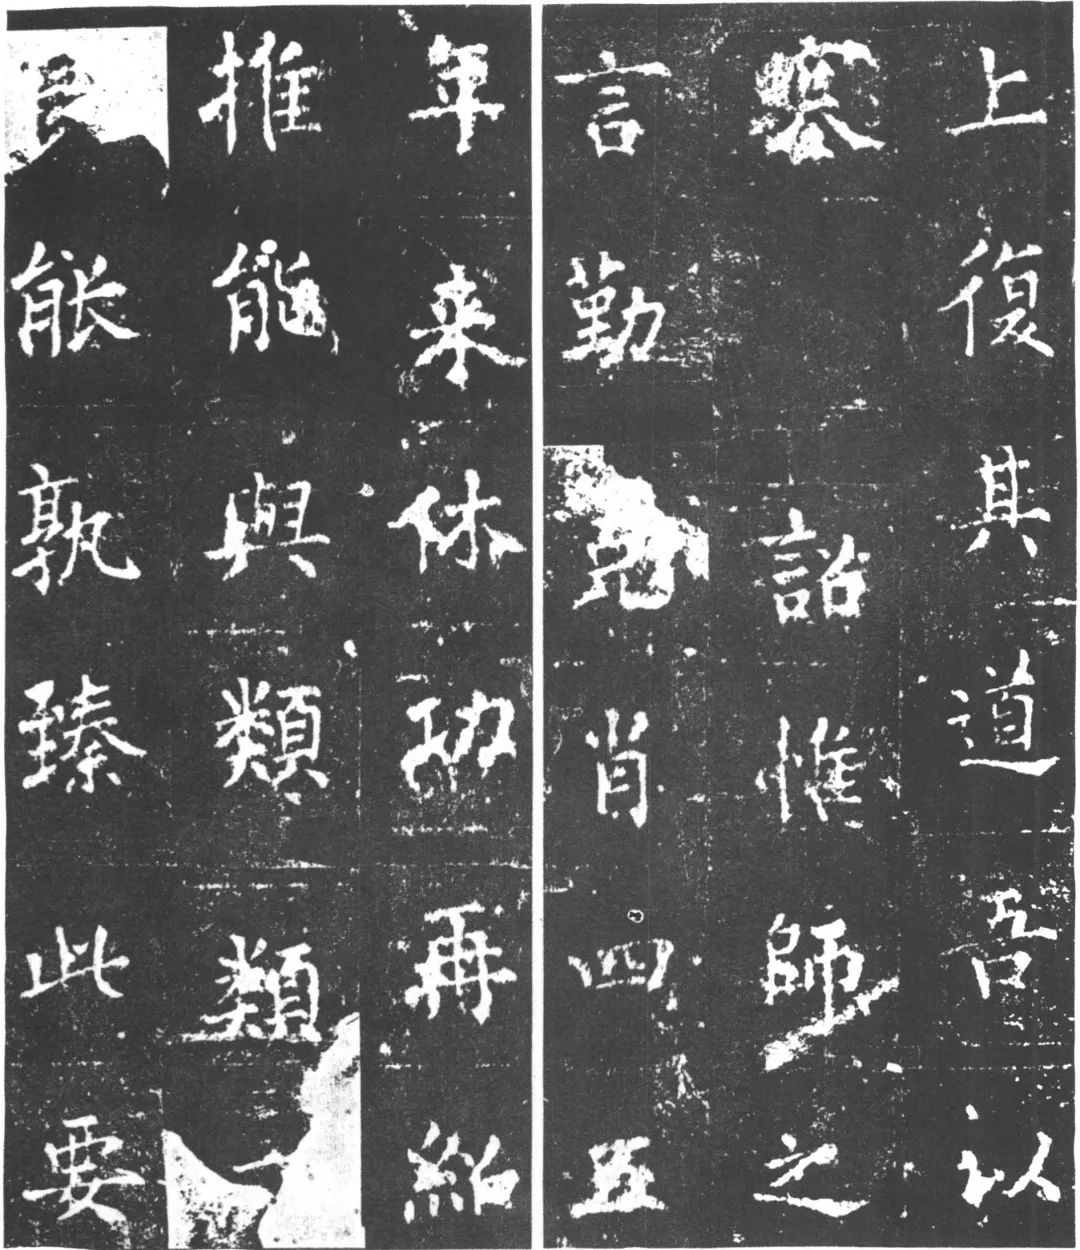 上復其道吾以
詔惟師之
言勤克肖四五
年来休功再紹
推能與類類
良能孰臻此要